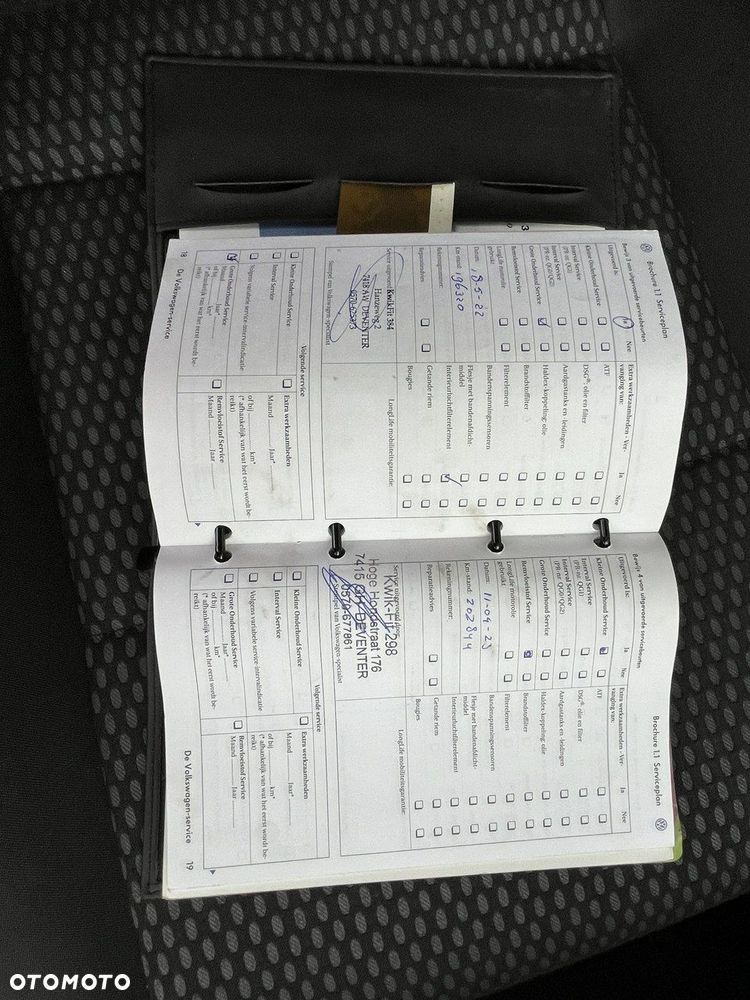 Brochure 1.1 Serviceplan
Bewijs 3 van uitgevoerde servicebeurten
Uitgevoerd is:
Ja
Nee
Kleine Onderhoud Service
Interval Service
(PR-nr. QG1)
Interval Service
(PR-nr. QG0/QG2)
Grote Onderhoud Service
Remvloeistof Service
LongLife motorolie
gebruikt
Datum: 18-5-22
Km-stand: 196320
Rekeningnummer:
Reparatieadvies
Extra werkzaamheden - Ver-
vanging van:
Ja
Nee
ATF
DSG®: olie en filter
Aardgastanks en -leidingen
Haldex koppeling: olie
Brandstoffilter
Filterelement
Bandenspanningssensoren
Flesje met bandenafdicht-
middel
Interieurluchtfilterelement
Getande riem
Bougies
Service uitgevoerd
LongLife mobiliteitsgarantie:
KwikFit 384
Hanzeweg 2
7418 AW DEVENTER
Stempel van Volkswagen-specialist
Volgende service
Kleine Onderhoud Service
Interval Service
Volgens variabele service-intervalindicatie
Grote Onderhoud Service
Maand Jaar*
of bij km*
(* afhankelijk van wat het eerst wordt be-
reikt)
Extra werkzaamheden
Maand Jaar*
of bij km*
(* afhankelijk van wat het eerst wordt be-
reikt)
Remvloeistof Service
Maand Jaar
18 De Volkswagen-service
Brochure 1.1 Serviceplan
Bewijs 4 van uitgevoerde servicebeurten
Uitgevoerd is:
Ja
Nee
Kleine Onderhoud Service
Interval Service
(PR-nr. QG1)
Interval Service
(PR-nr. QG0/QG2)
Grote Onderhoud Service
Remvloeistof Service
LongLife motorolie
gebruikt
Datum: 11-04-23
Km-stand: 202844
Rekeningnummer:
Reparatieadvies
Extra werkzaamheden - Ver-
vanging van:
Ja
Nee
ATF
DSG®: olie en filter
Aardgastanks en -leidingen
Haldex koppeling: olie
Brandstoffilter
Filterelement
Bandenspanningssensoren
Flesje met bandenafdicht-
middel
Interieurluchtfilterelement
Getande riem
Bougies
Service uitgevoerd door:
LongLife mobiliteitsgarantie:
KWIK-FIT 298
Hoge Hondstraat 176
7415 DEVENTER
0570-677861
Stempel van Volkswagen-specialist
Volgende service
Kleine Onderhoud Service
Interval Service
Volgens variabele service-intervalindicatie
Grote Onderhoud Service
Maand Jaar*
of bij km*
(* afhankelijk van wat het eerst wordt be-
reikt)
Extra werkzaamheden
Maand Jaar*
of bij km*
(* afhankelijk van wat het eerst wordt be-
reikt)
Remvloeistof Service
Maand Jaar
De Volkswagen-service 19
OTOMOTO